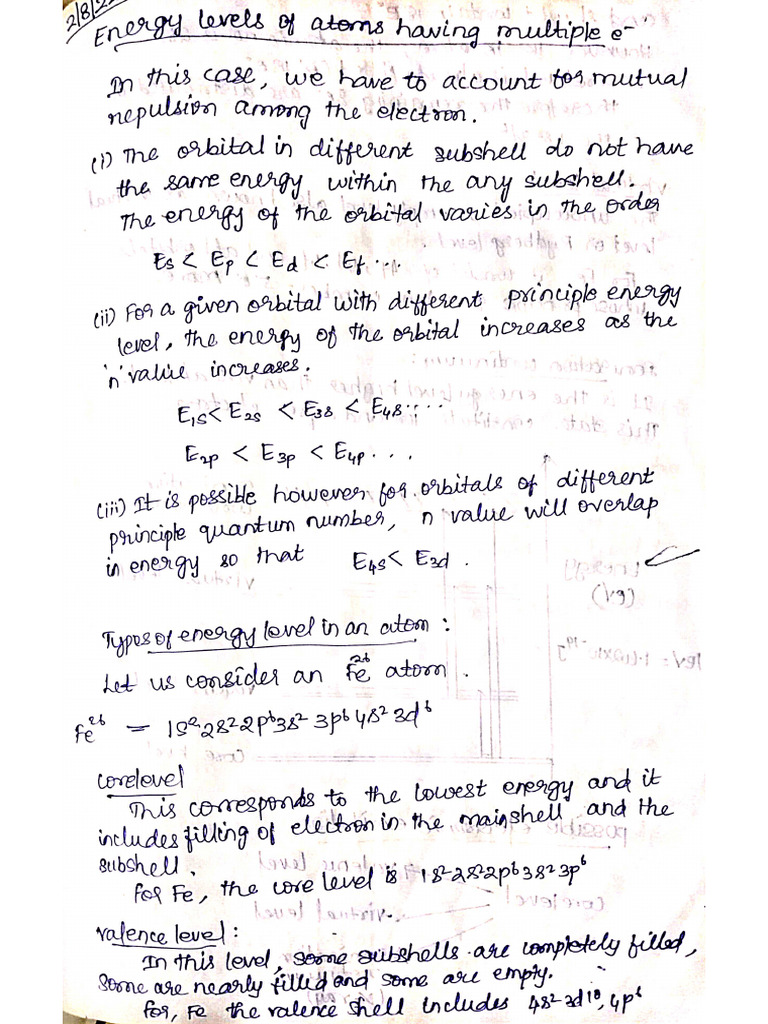 2/8/2
Energy levels of atoms having multiple e⁻
In this case, we have to account for mutual
repulsion among the electron.
(i) The orbital in different subshell do not have
the same energy within the any subshell.
The energy of the orbital varies in the order
Es < Ep < Ed < Ef ...
(ii) For a given orbital with different principle energy
level, the energy of the orbital increases as the
'n' value increases.
E1s < E2s < E3s < E4s ....
E2p < E3p < E4p ...
(iii) It is possible however for orbitals of different
principle quantum number, n value will overlap
in energy so that E4s < E3d .
Types of energy level in an atom :
Let us consider an Fe²⁶ atom .
Fe²⁶ = 1s² 2s² 2p⁶ 3s² 3p⁶ 4s² 3d⁶
Corelevel
This corresponds to the lowest energy and it
includes filling of electron in the mainshell and the
subshell.
For Fe, the core level is 1s² 2s² 2p⁶ 3s² 3p⁶
Valence level :
In this level, some subshells are completely filled,
Some are nearly filled and some are empty.
for, Fe the valence shell includes 4s² 3d¹⁰, 4p⁶